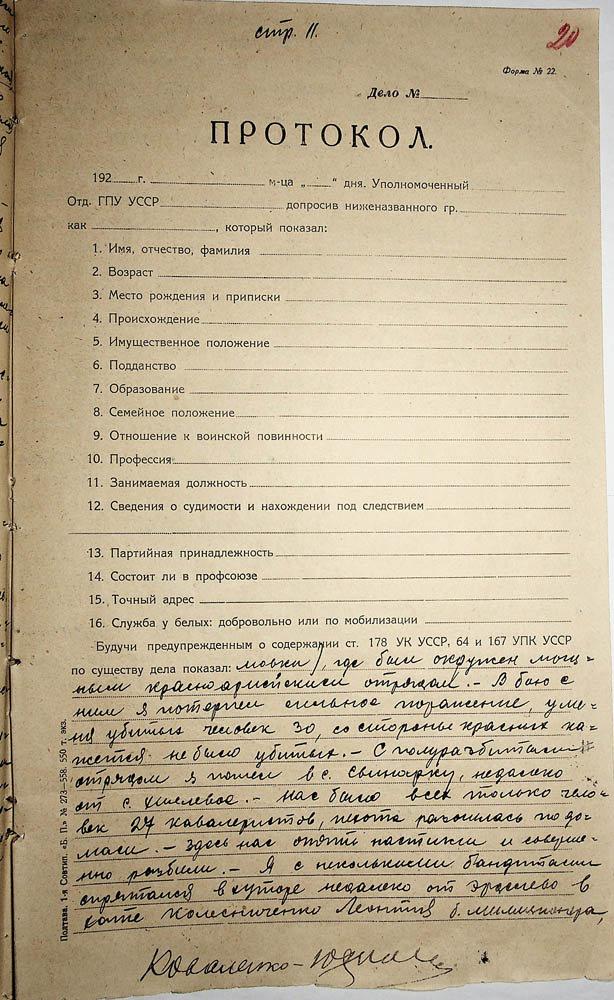 стр. 11.
20
Форма № 22.
Дело №
ПРОТОКОЛ.
192 г. м-ца „ “ дня. Уполномоченный
Отд. ГПУ УССР допросив ниженазванного гр.
как , который показал:
1. Имя, отчество, фамилия
2. Возраст
3. Место рождения и приписки
4. Происхождение
5. Имущественное положение
6. Подданство
7. Образование
8. Семейное положение
9. Отношение к воинской повинности
10. Профессия
11. Занимаемая должность
12. Сведения о судимости и нахождении под следствием
13. Партийная принадлежность
14. Состоит ли в профсоюзе
15. Точный адрес
16. Служба у белых: добровольно или по мобилизации
Будучи предупрежденным о содержании ст. 178 УК УССР, 64 и 167 УПК УССР
по существу дела показал: мовки), где был окружен мощ-
ным красноармейским отрядом. – В бою с
ним я потерпел сильное поражение, у ме-
ня убитых человек 30, со стороны красных ка-
жется не было убитых. – С полуразбитым
отрядом я пошел в с. Свинарку, недалеко
от с. Хмелевое. – Нас было всех только чело-
век 27 кавалеристов, пехота разошлась по до-
мам. – Здесь нас опять настигли и соверше-
нно разбили. – Я с несколькими бандитами
спрятался в хуторе недалеко от в
хате Колесниченко Леонтия б. миллионера,
Коваленко-
Полтава. 1-я Совтип. «Б. П.» № 273—558. 550 т. экз.